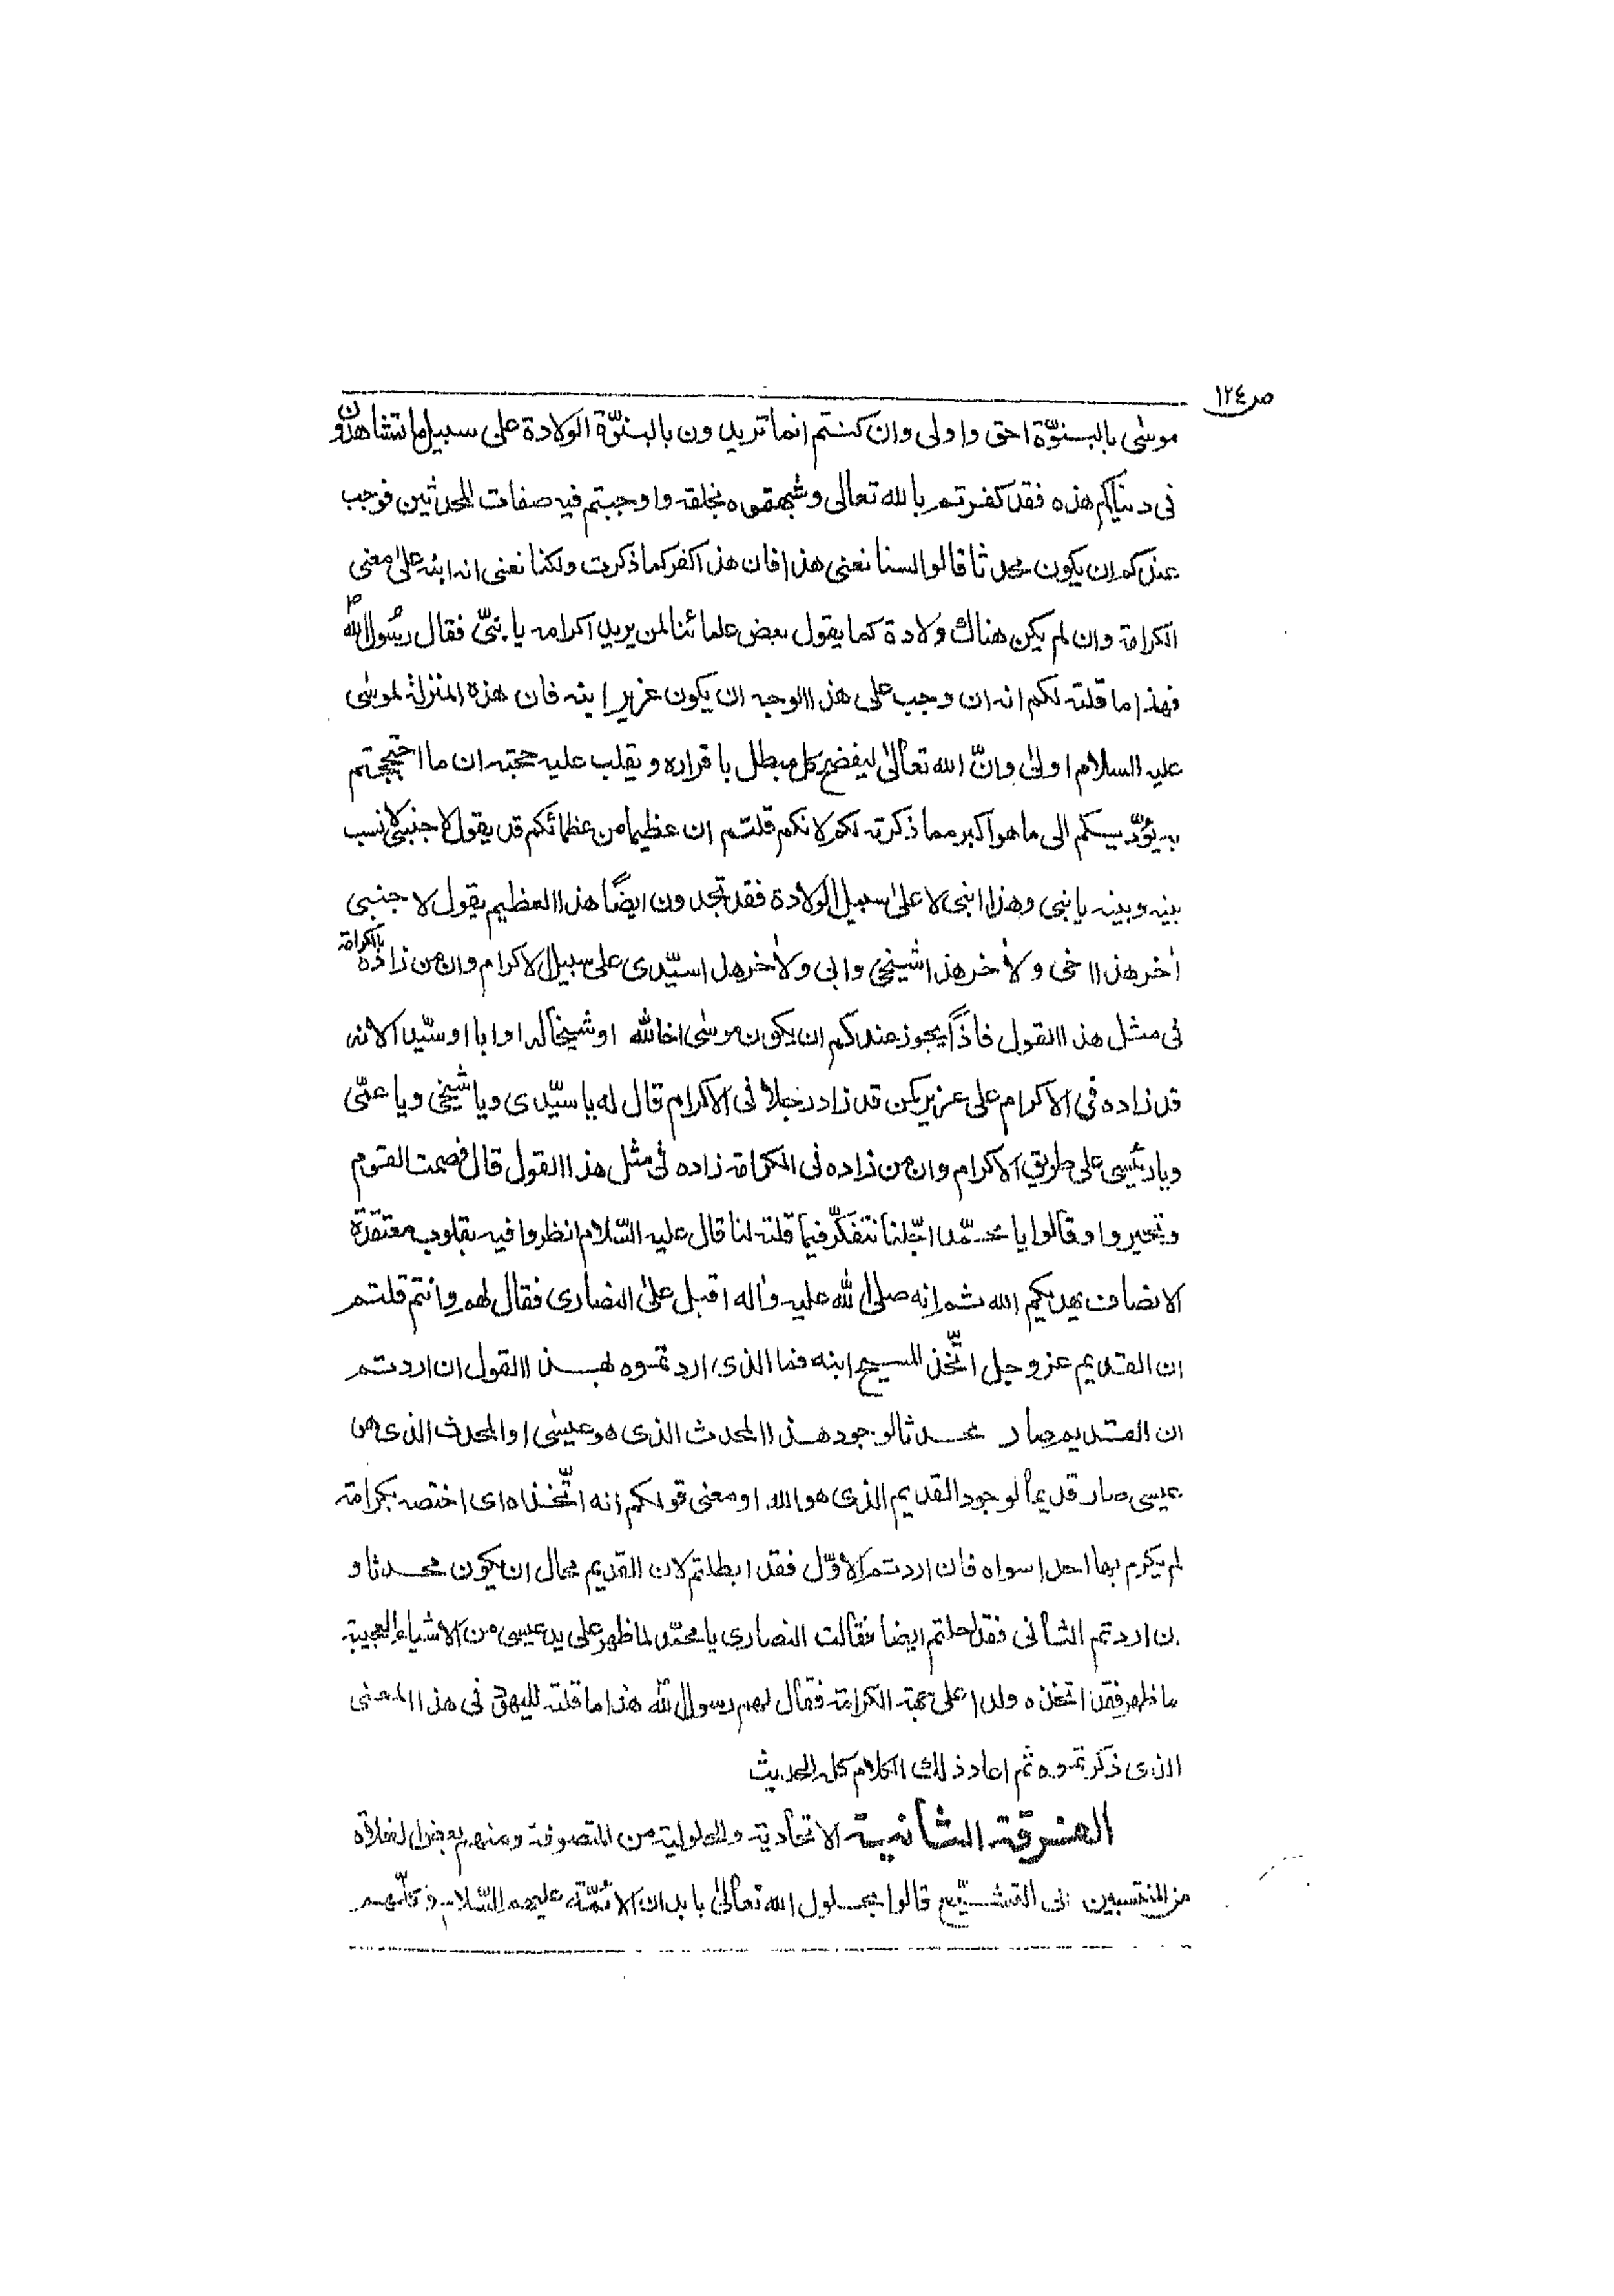 ص ١٢٤
موسٰى بالبنوّة احق واولى وان كنتم انما تريدون بالبنوّة الولادة على سبيل ما تشاهدون
فى دنياكم هذه فقد كفرتم بالله تعالى وشبهتموه بخلقه واوجبتم فيه صفات المحدثين فوجب
عندكم ان يكون محدثا قالوا لسنا نعنى هذا فان هذا كفر كما ذكرت ولكنا نعنى انه ابنه علىٰ معنى
الكرامة وان لم يكن هناك ولادة كما يقول بعض علمائنا لمن يريد اكرامه يا بنىّ فقال رسُول الله ص
فهذا ما قلته لكم انه ان وجب على هذا الوجه ان يكون عزير ابنه فان هذه المنزلة لموسٰى
عليه السلام اولىٰ وانّ الله تعالىٰ ليفضح كل مبطل باقراره ويقلب عليه حجته ان ما احتججتم
به يؤدّيكم الى ما هو اكبر مما ذكرته لكم لانكم قلتم ان عظيما من عظمائكم قد يقول لاجنبى لا نسب
بينه وبينه يا بنى وهذا ابنى لا علىٰ سبيل الولادة فقد تجدون ايضًا هذا العظيم يقول لاجنبى
اٰخر هذا اخى ولاٰخر هذا شيخى وابى ولاٰخر هذا سيّدى على سبيل الاكرام وان من زاده بالكرامة
فى مثل هذا القول فاذًا يجوز عندكم ان يكون موسٰى اخا لله او شيخا له او ابا او سيّدا لانه
قد زاده فى الاكرام على عزير كمن قد زاد رجلا فى الاكرام قال له يا سيّدى ويا شيخى ويا عمّى
ويا رئيسى على طريق الاكرام وان من زاده فى الكرامة زاده فى مثل هذا القول قال فصمت القوم
وتحيروا وقالوا يا محمّد اجّلنا نتفكّر فيما قلته لنا قال عليه السّلام انظروا فيه بقلوب معتقدة
الانصاف يهديكم الله ثم انه صلى الله عليه واٰله اقبل علىٰ النصارى فقال لهم وانتم قلتم
ان القديم عز وجل اتّخذ المسيح ابنه فما الذى اردتموه بهذا القول ان اردتم
ان القديم صار محدثا لوجود هذا المحدث الذى هو عيسٰى او المحدث الذى هن
عيسى صار قديماً لوجود القديم الذى هو الله او معنى قولكم انه اتّخذه اى اختصه بكرامة
لم يكرم بها احدا سواه فان اردتم الاوّل فقد ابطلتم لان القديم محال ان يكون محدثا و
ان اردتم الثانى فقد احلتم ايضا فقالت النصارى يا محمّد لما ظهر على يد عيسى من الاشياء العجيبة
ما ظهر فقد اتخذه ولدا على جهة الكرامة فقال لهم رسول الله هذا ما قلته لليهود فى هذا المعنى
الذى ذكرتموه ثم اعاد ذلك الكلام كله الحديث
الفرقة الثانية الاتحادية والحلولية من المتصوفة ومنهم بعض الغلاة
من المنتسبين الى التشيّع قالوا بحلول الله تعالىٰ بابدان الائمّة عليهم السّلام